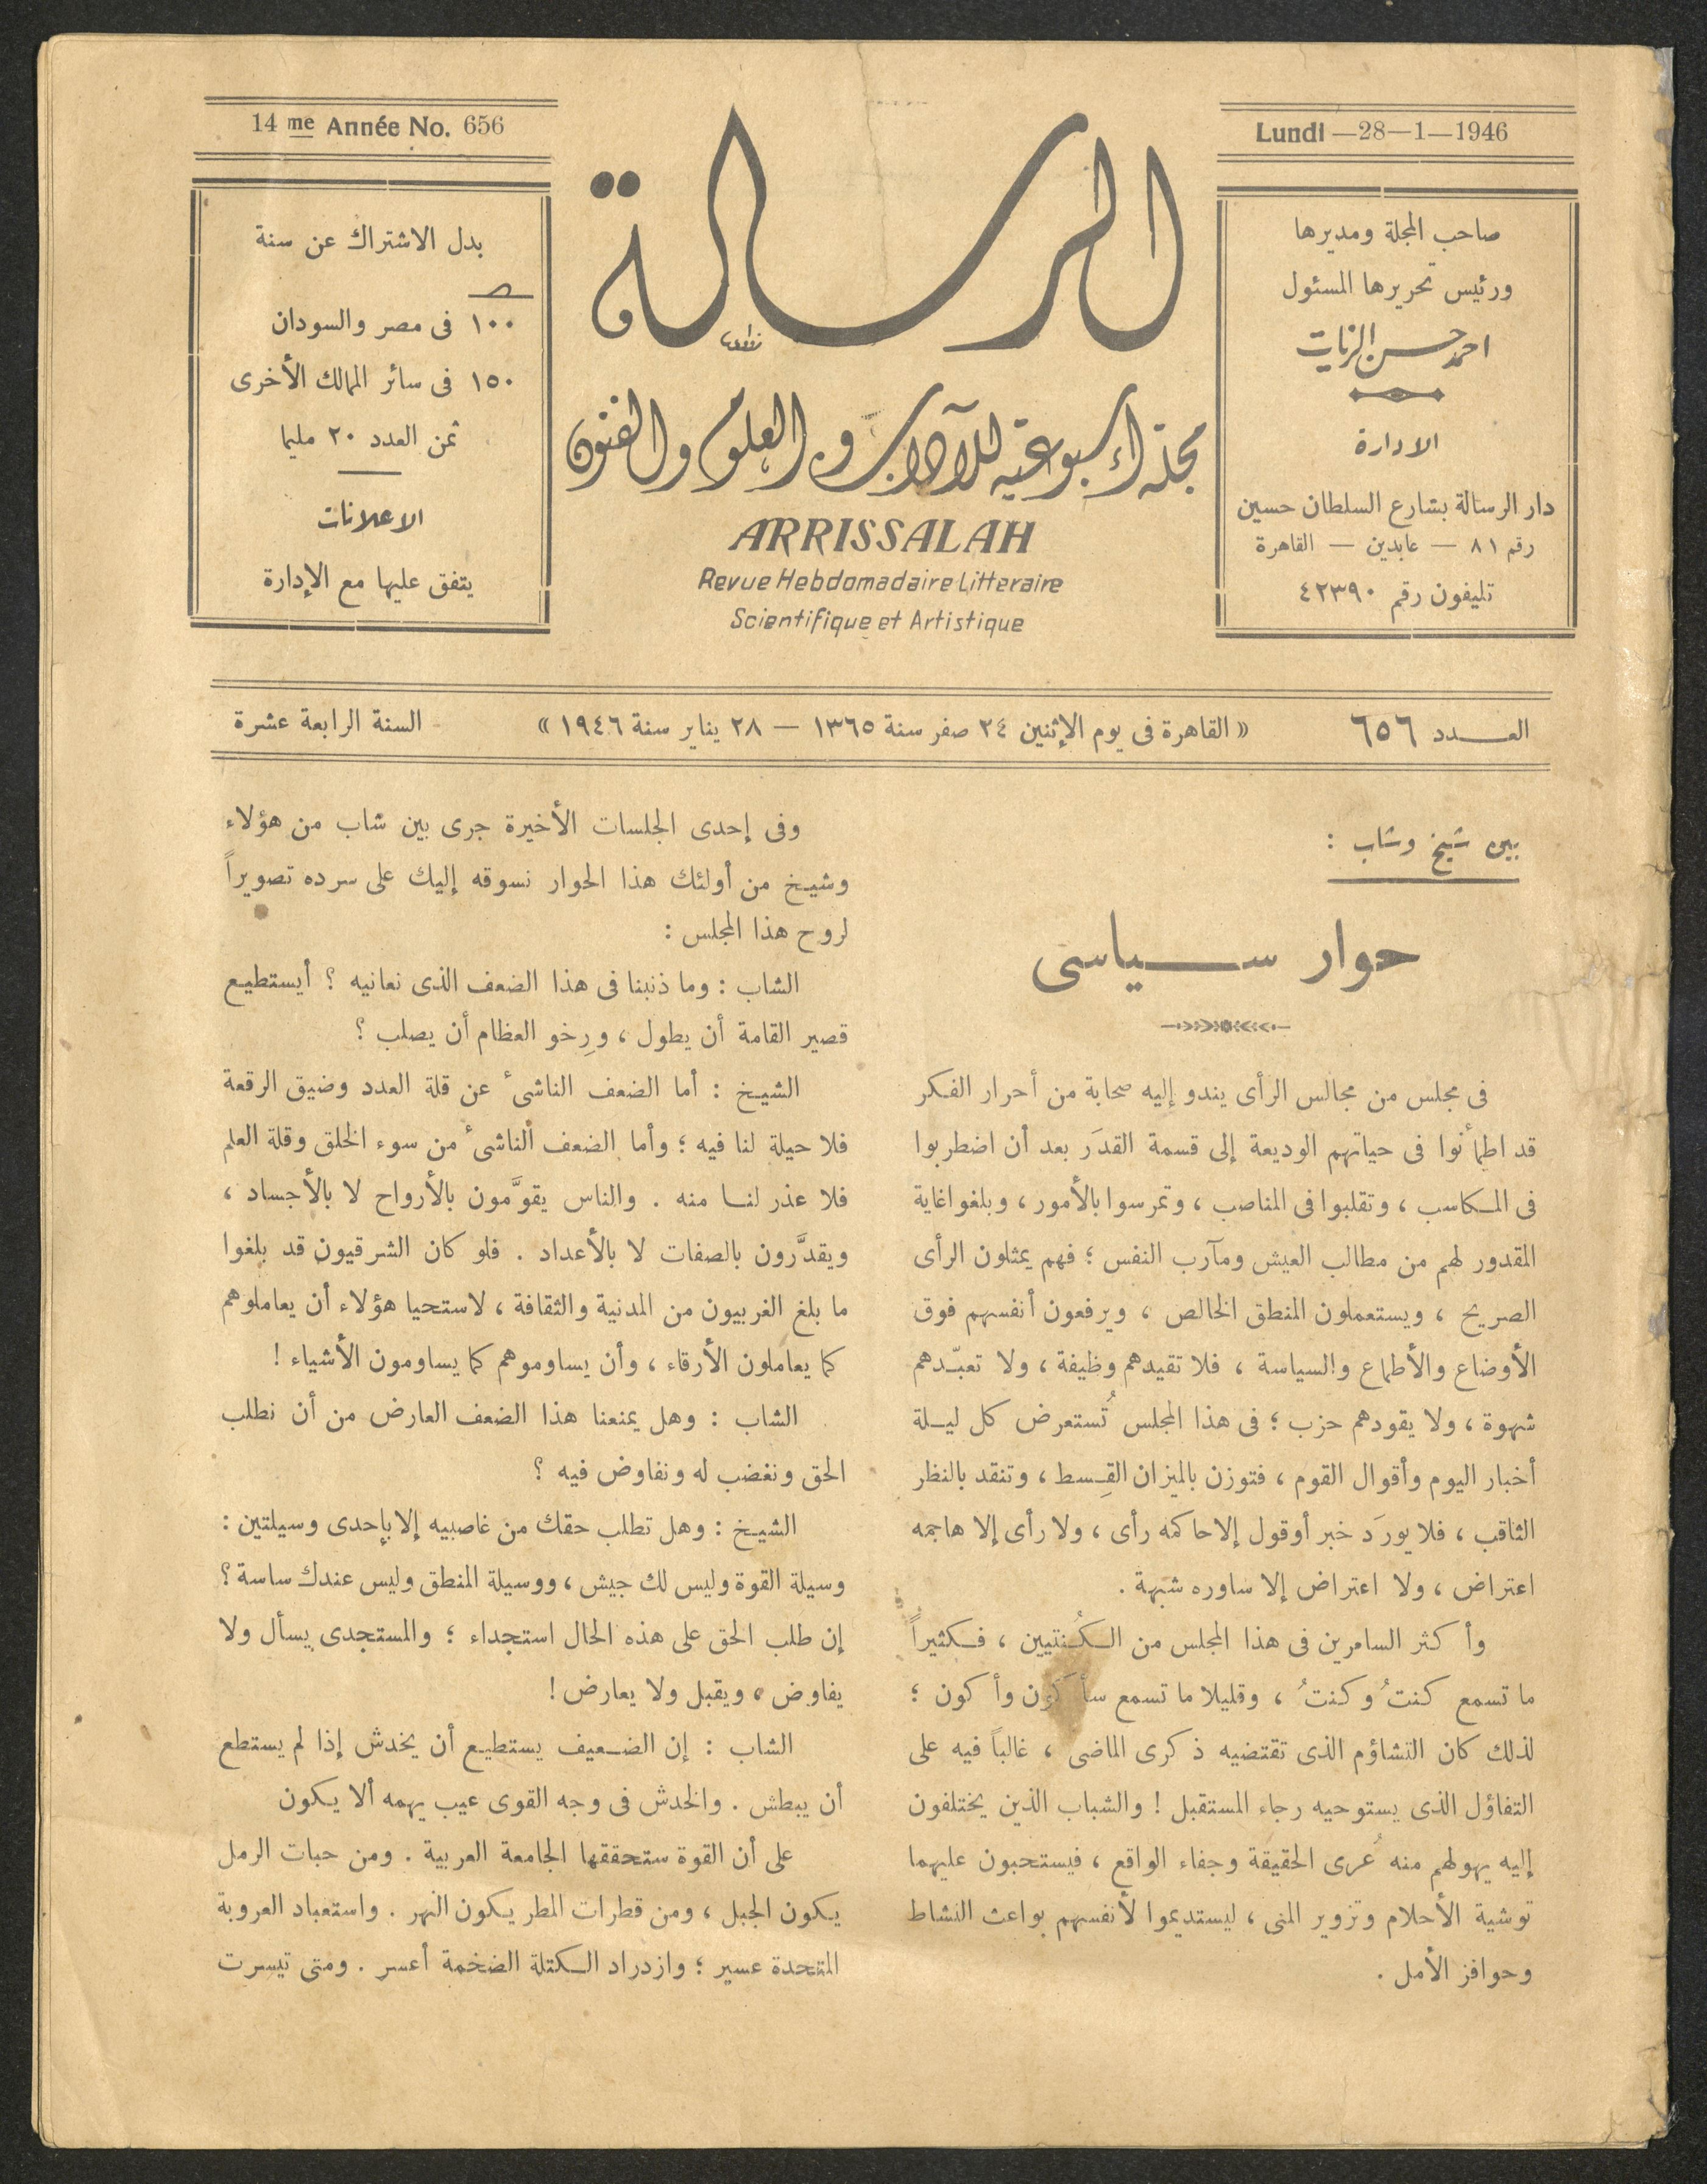 14 me Année No. 656
Lundi —28—1—1946
صاحب المجلة ومديرها
ورئيس تحريرها المسئول
احمد حسن الزيات
الادارة
دار الرسالة بشارع السلطان حسين
رقم ٨١ — عابدين — القاهرة
تليفون رقم ٤٢٣٩٠
الرسالة
مجلة أسبوعية للآداب والعلوم والفنون
ARRISSALAH
Revue Hebdomadaire Litteraire
Scientifique et Artistique
بدل الاشتراك عن سنة
١٠٠ فى مصر والسودان
١٥٠ فى سائر الممالك الأخرى
ثمن العدد ٢٠ مليما
الاعلانات
يتفق عليها مع الإدارة
العـــدد ٦٥٦
« القاهرة فى يوم الإثنين ٢٤ صفر سنة ١٣٦٥ — ٢٨ يناير سنة ١٩٤٦ »
السنة الرابعة عشرة
بين شيخ وشاب :
حوار سـياسى
فى مجلس من مجالس الرأى يندو إليه صحابة من أحرار الفكر
قد اطمأنوا فى حياتهم الوديعة إلى قسمة القدَر بعد أن اضطربوا
فى المـكاسب ، وتقلبوا فى المناصب ، وتمرسوا بالأمور ، وبلغوا غاية
المقدور لهم من مطالب العيش ومآرب النفس ؛ فهم يمثلون الرأى
الصريح ، ويستعملون المنطق الخالص ، ويرفعون أنفسهم فوق
الأوضاع والأطماع والسياسة ، فلا تقيدهم وظيفة ، ولا تعبّـدهم
شهوة ، ولا يقودهم حزب ؛ فى هذا المجلس تُستعرض كل ليـلة
أخبار اليوم وأقوال القوم ، فتوزن بالميزان القِـسط ، وتنقد بالنظر
الثاقب ، فلا يورَد خبر أو قول إلا حاكمه رأى ، ولا رأى إلا هاجمه
اعتراض ، ولا اعتراض إلا ساوره شبهة .
وأكثر السامرين فى هذا المجلس من الـكُـنتيين ، فـكثيراً
ما تسمع كنتُ وكنتُ ، وقليلا ما تسمع سأكون وأكون ؛
لذلك كان التشاؤم الذى تقتضيه ذكرى الماضى ، غالباً فيه على
التفاؤل الذى يستوحيه رجاء المستقبل ! والشباب الذين يختلفون
إليه يهولهم منه عُرى الحقيقة وجفاء الواقع ، فيستحبون عليهما
توشية الأحلام وتزوير المنى ، ليستديموا لأنفسهم بواعث النشاط
وحوافز الأمل .
وفى إحدى الجلسات الأخيرة جرى بين شاب من هؤلاء
وشيـخ من أولئك هذا الحوار نسوقه إليك على سرده تصويراً
لروح هذا المجلس :
الشاب : وما ذنبنا فى هذا الضعف الذى نعانيه ؟ أيستطيـع
قصير القامة أن يطول ، ورِخو العظام أن يصلب ؟
الشيـخ : أما الضعف الناشىء عن قلة العدد وضيق الرقعة
فلا حيلة لنا فيه ؛ وأما الضعف الناشىء من سوء الخلق وقلة العلم
فلا عذر لنـا منه . والناس يقوَّمون بالأرواح لا بالأجساد ،
ويقدَّرون بالصفات لا بالأعداد . فلو كان الشرقيون قد بلغوا
ما بلغ الغربيون من المدنية والثقافة ، لاستحيا هؤلاء أن يعاملوهم
كما يعاملون الأرقاء ، وأن يساوموهم كما يساومون الأشياء !
الشاب : وهل يمنعنا هذا الضعف العارض من أن نطلب
الحق ونغضب له ونفاوض فيه ؟
الشيـخ : وهل تطلب حقك من غاصبيه إلا بإحدى وسيلتين :
وسيلة القوة وليس لك جيش ، ووسيلة المنطق وليس عندك ساسة ؟
إن طلب الحق على هذه الحال استجداء ؛ والمستجدى يسأل ولا
يفاوض ، ويقبل ولا يعارض !
الشاب : إن الضـعيف يستطيـع أن يخدش إذا لم يستطع
أن يبطش . والخدش فى وجه القوى عيب يهمه ألا يكون
على أن القوة ستحققها الجامعة العربية . ومن حبات الرمل
يـكون الجبل ، ومن قطرات المطر يـكون النهر . واستعباد العروبة
المتحدة عسير ؛ وازدراد الـكتلة الضخمة أعسر . ومتى تيسرت